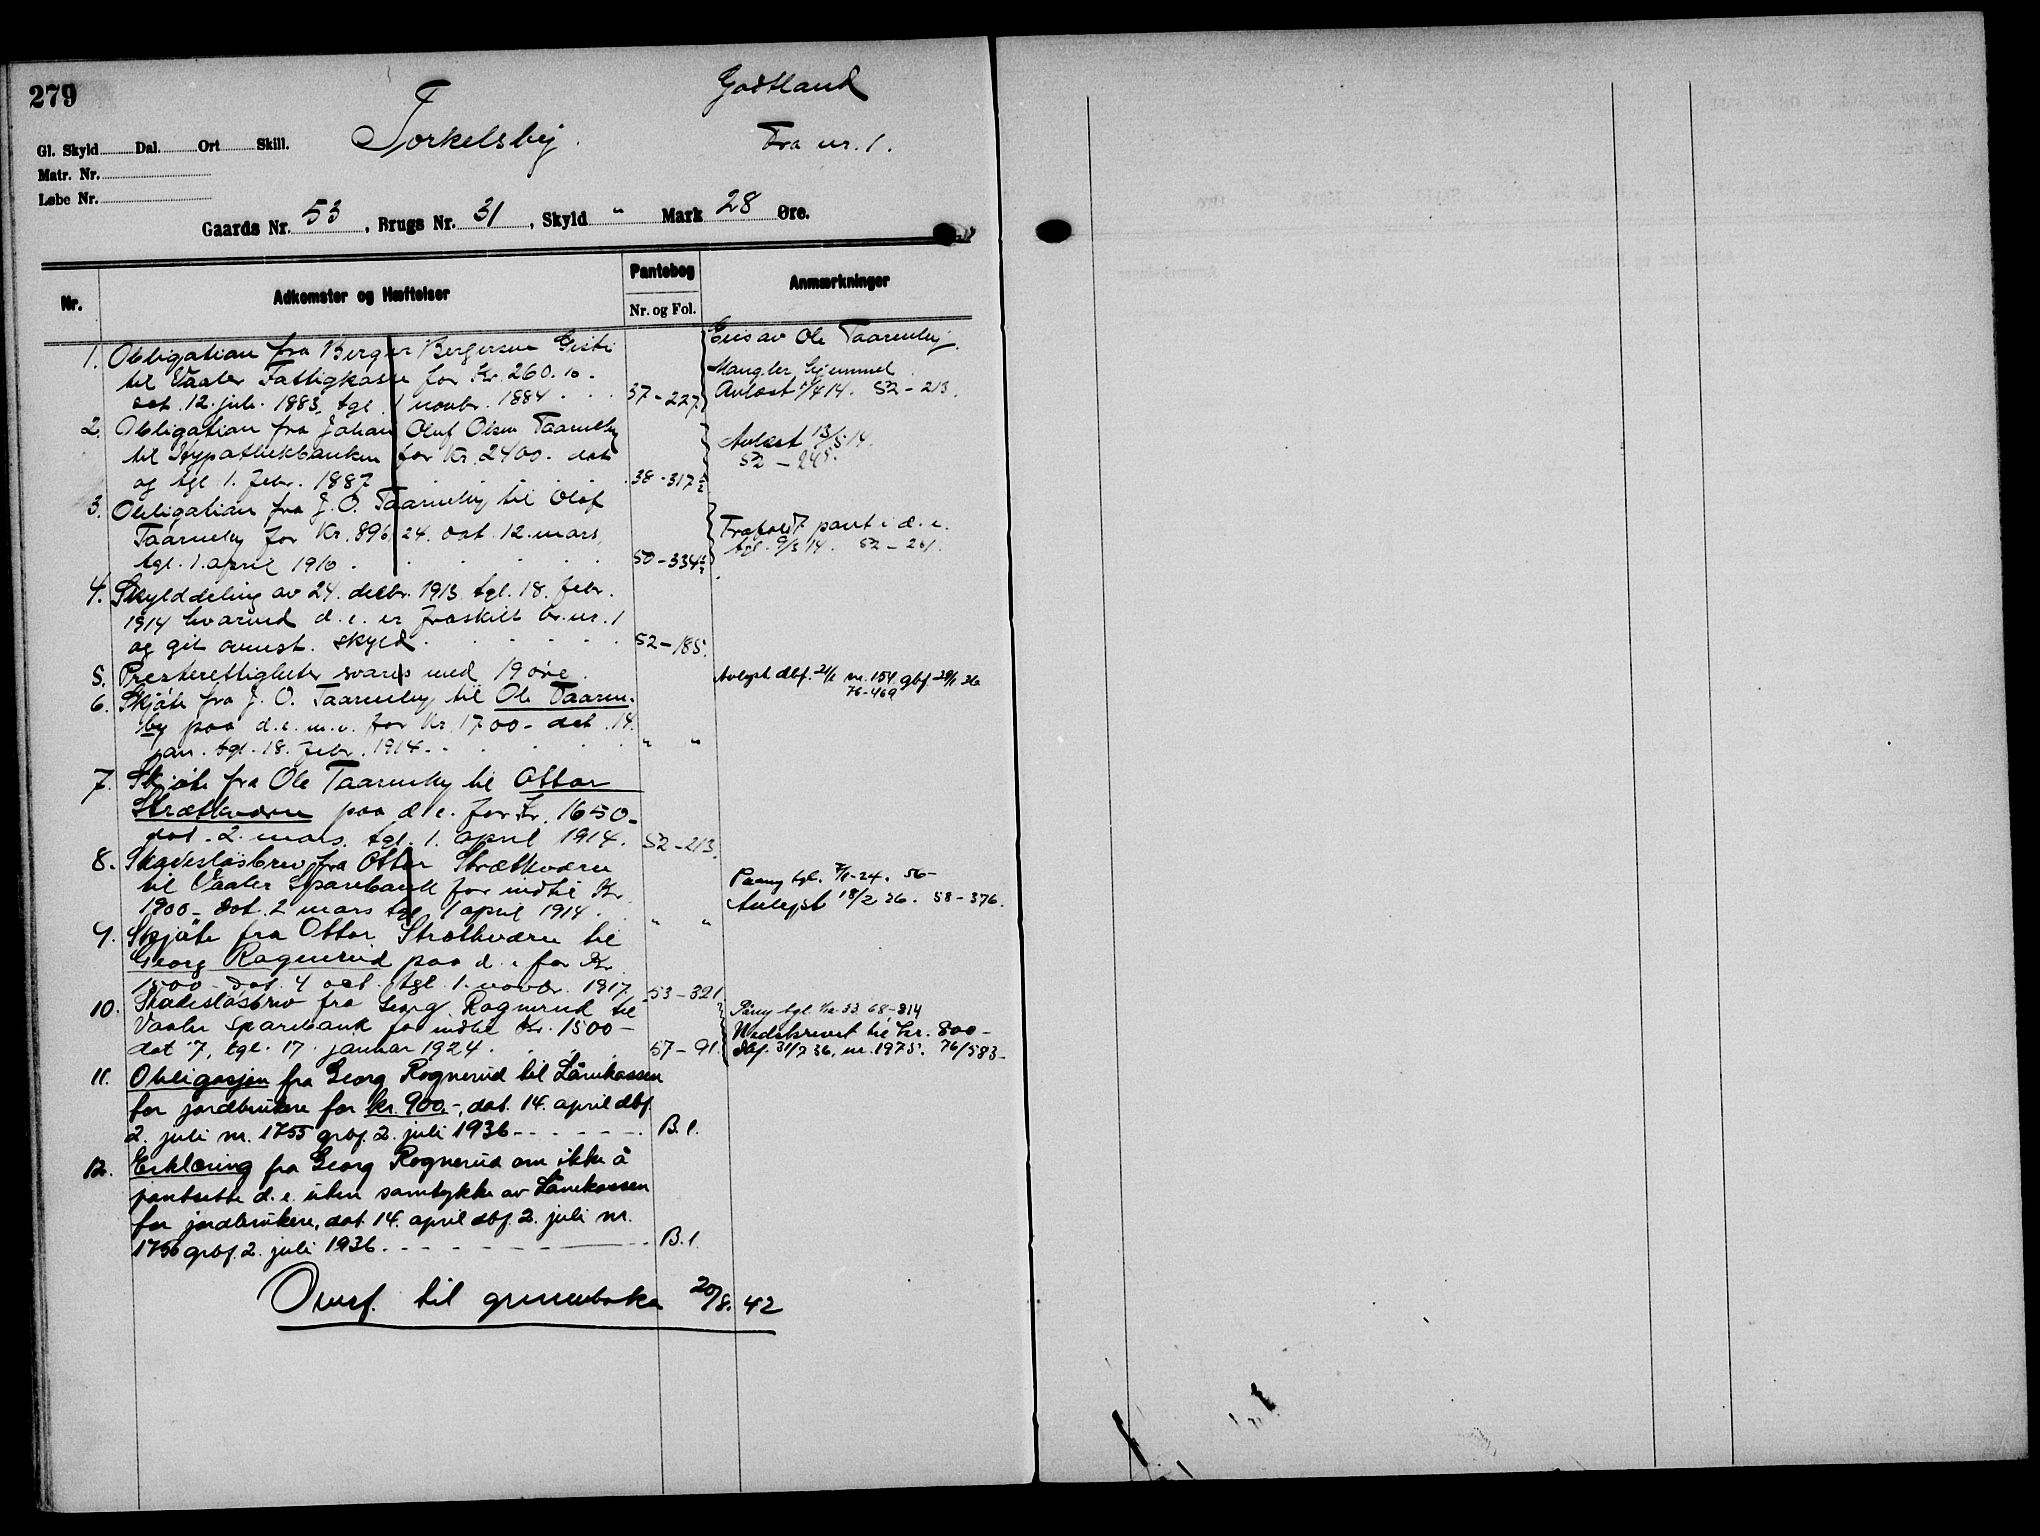 279
Godtland
Torkelsby.
Fra nr. 1.
Gl. Skyld Dal. Ort Skill.
Matr. Nr.
Løbe Nr.
Gaards Nr. 53, Brugs Nr. 31, Skyld " Mark 28 Øre.
Nr. Adkomster og Hæftelser Pantebog Nr. og Fol. Anmærkninger
1. Obligation fra Berger Bergersen
til Vaaler Fattigkasse for Kr. 260.10.
dat. 12. juli 1883, tgl. 1 novbr. 1884 37-227
Eies av Ole Taarneby.
Mangler hjemmel
Avløst 1/4 14. 52-213.
2. Obligation fra Johan Oluf Olsen Taarneby
til Hypothekbanken for Kr. 2400. dat
og tgl 1. febr. 1887 38-317½
Avløst 13/5 14.
52-245.
3. Obligation fra J. O. Taarneby til Olof
Taarneby for Kr. 896,24. dat. 12. mars,
tgl. 1. april 1910. 50-334½
Frafaldt pant i d. e.
tgl. 9/5 14. 52-261.
4. Skylddeling av 24. decbr. 1913 tgl. 18. febr.
1914 hvorved d. e. er fraskilt br. nr. 1
og git ovenst. skyld 52-185.
5. Presterettigheter svares med 19 øre.
Avlyst dbf. 21/1 nr. 154 gbf 29/1 36
76-469
6. Skjøte fra J. O. Taarneby til Ole Taarne-
by paa d. e. m. v. for Kr. 1700- dat. 14.
jan. tgl. 18. febr. 1914. " "
7. Skjøte fra Ole Taarneby til Ottar
Strætkværn paa d. e. for Kr. 1650-
dat. 2. mars. tgl. 1. april 1914. 52-213.
8. Skadesløsbrev fra Ottar Strætkværn
til Vaaler Sparebank for indtil Kr.
1900- dat. 2 mars tgl. 1 april 1914. " "
Paany tgl. 7/1-24. 56-
Avlyst 18/2 26. 58-376.
9. Skjøte fra Ottar Strætkværn til
Georg Rognerud paa d. e. for Kr.
1500- dat. 4 oct. tgl. 1. novbr. 1917 53-321
10. Skadesløsbrev fra Georg Rognerud til
Vaaler Sparebank for indtil Kr. 1500-
dat 7, tgl. 17. januar 1924. 57-91.
Påny tgl. 33. 68-814
Nedskrevet til kr. 800-
dbf. 31/7 36, nr. 1975. 76/583-
11. Obligasjon fra Georg Rognerud til Lånekassen
for jordbrukere for kr. 900,-, dat. 14. april dbf.
2. juli nr. 1755 grbf. 2. juli 1936 B.1.
12. Erklæring fra Georg Rognerud om ikke å
pantsette d. e. uten samtykke av Lånekassen
for jordbrukere, dat. 14. april dbf. 2. juli nr.
1756 grbf. 2. juli 1936. B.1.
Overf. til grunnboka 20/8. 42